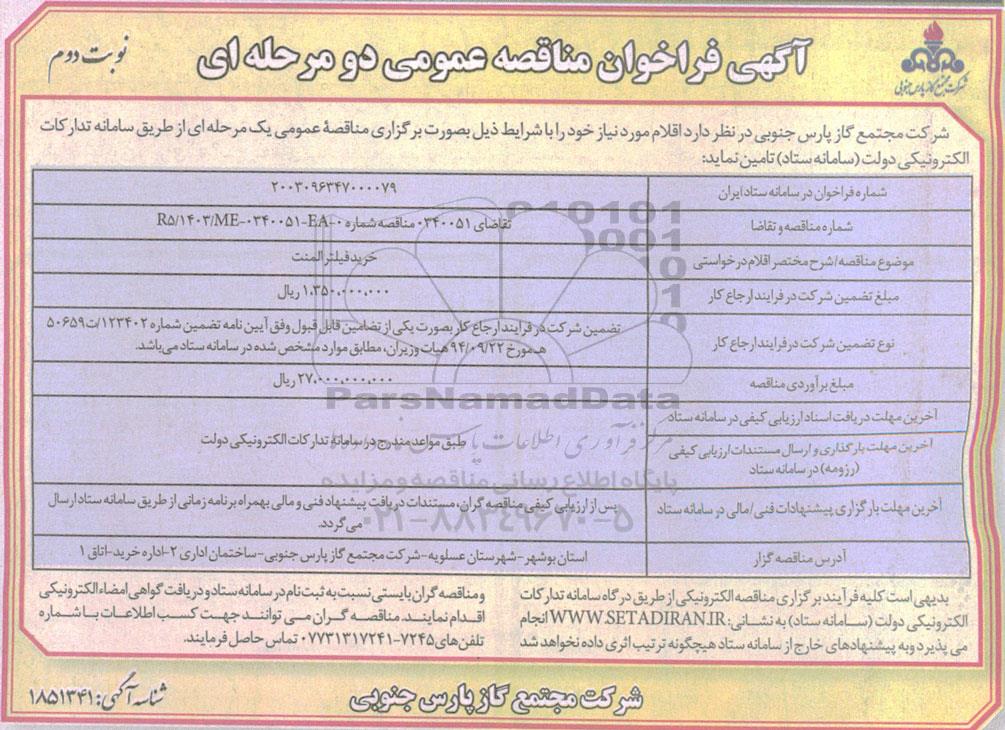 آگهی فراخوان مناقصه عمومی دو مرحله ای
نوبت دوم
شرکت مجتمع گاز پارس جنوبی
شرکت مجتمع گاز پارس جنوبی در نظر دارد اقلام مورد نیاز خود را با شرایط ذیل بصورت برگزاری مناقصۀ عمومی یک مرحله ای از طریق سامانه تدارکات
الکترونیکی دولت (سامانه ستاد) تامین نماید:
شماره فراخوان در سامانه ستاد ایران
۲۰۰۳۰۹۶۳۴۷۰۰۰۰۷۹
شماره مناقصه و تقاضا
تقاضای ۰۳۴۰۰۵۱ مناقصه شماره R5/1403/ME-0340051-EA-0
موضوع مناقصه/شرح مختصر اقلام درخواستی
خرید فیلتر المنت
مبلغ تضمین شرکت در فرایند ارجاع کار
۱،۳۵۰،۰۰۰،۰۰۰ ریال
نوع تضمین شرکت در فرایند ارجاع کار
تضمین شرکت در فرایند ارجاع کار بصورت یکی از تضامین قابل قبول وفق آیین نامه تضمین شماره ۱۲۳۴۰۲/ت۵۰۶۵۹
هـ مورخ ۹۴/۰۹/۲۲ هیات وزیران، مطابق موارد مشخص شده در سامانه ستاد می‌باشد.
مبلغ برآوردی مناقصه
۲۷،۰۰۰،۰۰۰،۰۰۰ ریال
آخرین مهلت دریافت اسناد ارزیابی کیفی در سامانه ستاد
آخرین مهلت بارگذاری و ارسال مستندات ارزیابی کیفی
(رزومه) در سامانه ستاد
طبق مواعد مندرج در سامانه تدارکات الکترونیکی دولت
آخرین مهلت بارگزاری پیشنهادات فنی/مالی در سامانه ستاد
پس از ارزیابی کیفی مناقصه گران، مستندات دریافت پیشنهاد فنی و مالی بهمراه برنامه زمانی از طریق سامانه ستاد ارسال
می‌گردد.
آدرس مناقصه گزار
استان بوشهر-شهرستان عسلویه-شرکت مجتمع گاز پارس جنوبی-ساختمان اداری ۲-اداره خرید-اتاق ۱
ParsNamadData
پایگاه اطلاع رسانی مناقصه و مزایده
۰۲۱-۸۸۳۴۹۶۷۰-۵
بدیهی است کلیه فرآیند برگزاری مناقصه الکترونیکی از طریق درگاه سامانه تدارکات
الکترونیکی دولت (سامانه ستاد) به نشانی: WWW.SETADIRAN.IR انجام
می پذیرد و به پیشنهادهای خارج از سامانه ستاد هیچگونه ترتیب اثری داده نخواهد شد
و مناقصه گران بایستی نسبت به ثبت نام در سامانه ستاد و دریافت گواهی امضاء الکترونیکی
اقدام نمایند. مناقصه گران می توانند جهت کسب اطلاعات با شماره
تلفن های ۷۲۴۵-۰۷۷۳۱۳۱۷۲۴۱ تماس حاصل فرمایند.
شرکت مجتمع گاز پارس جنوبی
شناسه آگهی: ۱۸۵۱۳۴۱